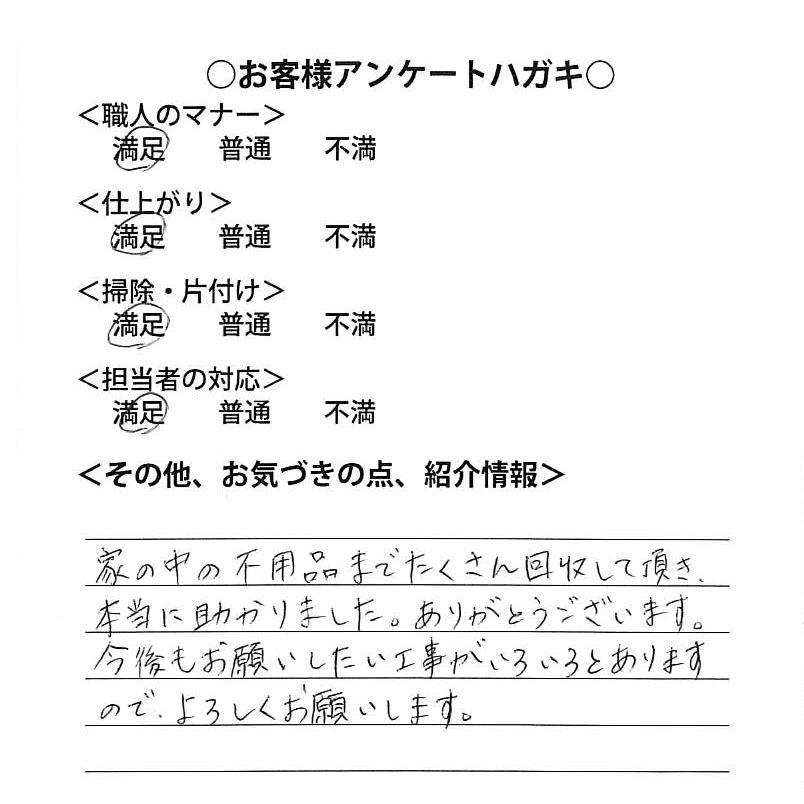 ○お客様アンケートハガキ○
＜職人のマナー＞
満足 普通 不満
＜仕上がり＞
満足 普通 不満
＜掃除・片付け＞
満足 普通 不満
＜担当者の対応＞
満足 普通 不満
＜その他、お気づきの点、紹介情報＞
家の中の不用品までたくさん回収して頂き、
本当に助かりました。ありがとうございます。
今後もお願いしたい工事がいろいろとあります
ので、よろしくお願いします。